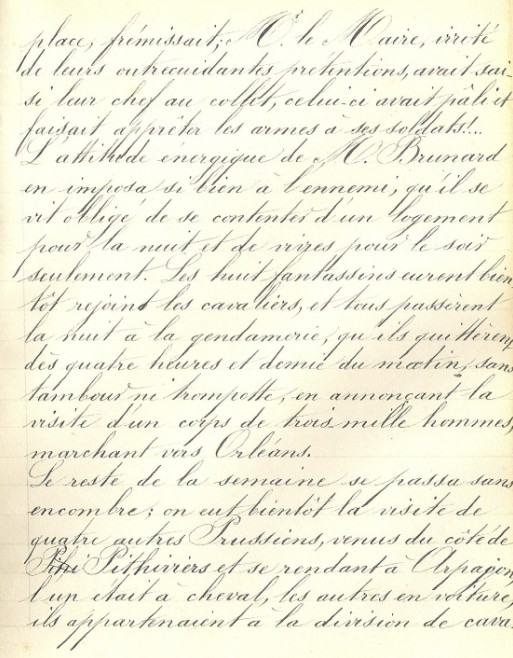 place, frémissait; Mr. le Maire, irrité
de leurs outrecuidantes pretentions, avait sai-
si leur chef au collet, celui-ci avait pâli et
faisait apprêter les armes à ses soldats!...
L'attitude énergique de M. Brunard
en imposa si bien à l'ennemi, qu'il se
vit obligé de se contenter d'un logement
pour la nuit et de vivres pour le soir
seulement. Les huit fantassins eurent bien
tôt rejoint les cavaliers, et tous passèrent
la nuit à la gendamerie, qu'ils quittèrent
dès quatre heures et demie du matin, sans
tambour ni trompette, en annonçant la
visite d'un corps de trois mille hommes,
marchant vers Orléans.
Le reste de la semaine se passa sans
encombre; on eut bientôt la visite de
quatre autres Prussiens, venus du côté de
Pithiviers et se rendant à Arpagon,
l'un était à cheval, les autres en voiture,
ils appartenaient à la division de cava-